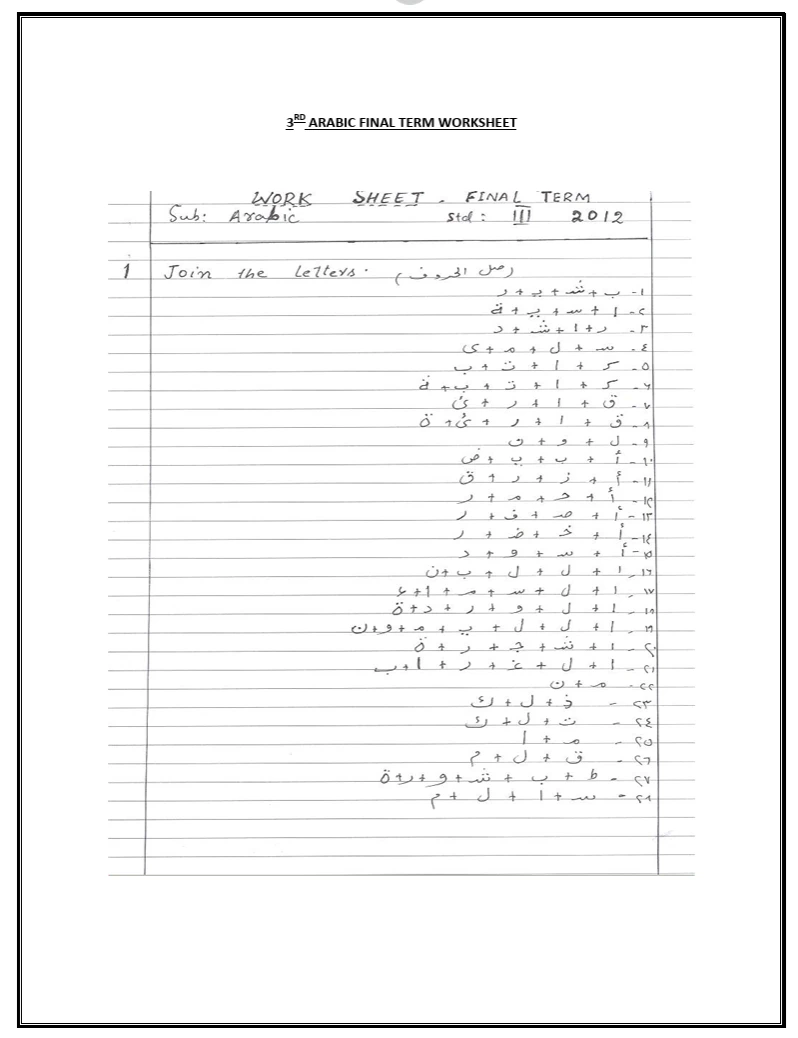 3RD ARABIC FINAL TERM WORKSHEET
WORK SHEET . FINAL TERM
Sub: Arabic Std : III 2012
1 Join the Letters. (صل الحروف)
١- ب + شـ + يـ + ر
٢- ا + سـ + يـ + ة
٣- ر + ا + شـ + د
٤- سـ + ل + مـ + ى
٥- كـ + ا + تـ + ب
٦- كـ + ا + تـ + بـ + ة
٧- ق + ا + ر + ئ
٨- ق + ا + ر + ئـ + ة
٩- ل + و + ن
١٠- أ + ب + يـ + ض
١١- أ + ز + ر + ق
١٢- أ + حـ + مـ + ر
١٣- أ + صـ + فـ + ر
١٤- أ + خـ + ضـ + ر
١٥- أ + سـ + و + د
١٦- ا + ل + ل + بـ + ن
١٧- ا + ل + سـ + مـ + ا + ء
١٨- ا + ل + و + ر + د + ة
١٩- ا + ل + ل + يـ + مـ + و + ن
٢٠- ا + شـ + جـ + ر + ة
٢١- ا + ل + غـ + ر + ا + ب
٢٢- مـ + ن
٢٣- ذ + ل + ك
٢٤- تـ + ل + ك
٢٥- مـ + ا
٢٦- ق + ل + م
٢٧- ط + ب + شـ + و + ر + ة
٢٨- سـ + ا + ل + م